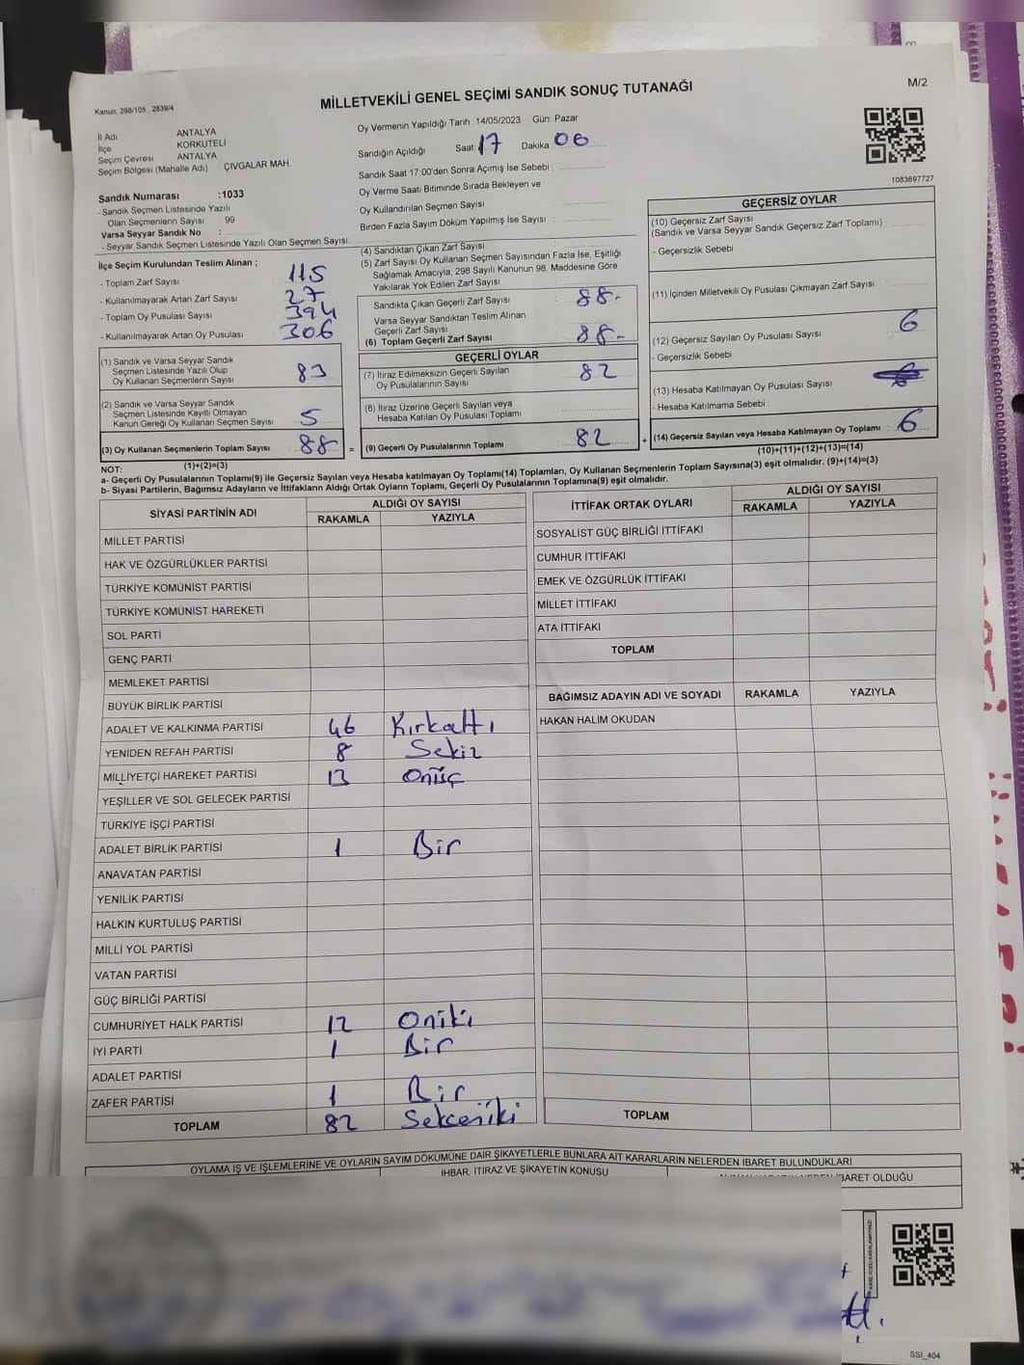 MİLLETVEKİLİ GENEL SEÇİMİ SANDIK SONUÇ TUTANAĞI
M/2
Kanun: 298/105 , 2839/4
İl Adı ANTALYA
İlçe KORKUTELİ
Seçim Çevresi ANTALYA
Seçim Bölgesi (Mahalle Adı) ÇIVGALAR MAH.
Sandık Numarası :1033
- Sandık Seçmen Listesinde Yazılı
Olan Seçmenlerin Sayısı 99
Varsa Seyyar Sandık No :
- Seyyar Sandık Seçmen Listesinde Yazılı Olan Seçmen Sayısı
Oy Vermenin Yapıldığı Tarih: 14/05/2023 Gün: Pazar
Sandığın Açıldığı Saat: 17 Dakika 06
Sandık Saat 17:00'den Sonra Açımış İse Sebebi :
Oy Verme Saati Bitiminde Sırada Bekleyen ve
Oy Kullandırılan Seçmen Sayısı
Birden Fazla Sayım Döküm Yapılmış İse Sayısı
1083697727
İlçe Seçim Kurulundan Teslim Alınan ;
- Toplam Zarf Sayısı 115
- Kullanılmayarak Artan Zarf Sayısı 27
- Toplam Oy Pusulası Sayısı 394
- Kullanılmayarak Artan Oy Pusulası 306
(1) Sandık ve Varsa Seyyar Sandık
Seçmen Listesinde Yazılı Olup
Oy Kullanan Seçmenlerin Sayısı 83
(2) Sandık ve Varsa Seyyar Sandık
Seçmen Listesinde Kayıtlı Olmayan
Kanun Gereği Oy Kullanan Seçmen Sayısı 5
(3) Oy Kullanan Seçmenlerin Toplam Sayısı 88 =
(1)+(2)=(3)
(4) Sandıktan Çıkan Zarf Sayısı
(5) Zarf Sayısı Oy Kullanan Seçmen Sayısından Fazla İse, Eşitliği
Sağlamak Amacıyla, 298 Sayılı Kanunun 98. Maddesine Göre
Yakılarak Yok Edilen Zarf Sayısı
Sandıkta Çıkan Geçerli Zarf Sayısı 88-
Varsa Seyyar Sandıktan Teslim Alınan
Geçerli Zarf Sayısı
(6) Toplam Geçerli Zarf Sayısı 88-
GEÇERLİ OYLAR
(7) İtiraz Edilmeksizin Geçerli Sayılan
Oy Pusulalarının Sayısı 82
(8) İtiraz Üzerine Geçerli Sayılan veya
Hesaba Katılan Oy Pusulası Toplamı
(9) Geçerli Oy Pusulalarının Toplamı 82 +
GEÇERSİZ OYLAR
(10) Geçersiz Zarf Sayısı
(Sandık ve Varsa Seyyar Sandık Geçersiz Zarf Toplamı)
- Geçersizlik Sebebi
(11) İçinden Milletvekili Oy Pusulası Çıkmayan Zarf Sayısı
(12) Geçersiz Sayılan Oy Pusulası Sayısı 6
- Geçersizlik Sebebi
(13) Hesaba Katılmayan Oy Pusulası Sayısı
- Hesaba Katılmama Sebebi
(14) Geçersiz Sayılan veya Hesaba Katılmayan Oy Toplamı : 6
(10)+(11)+(12)+(13)=(14)
NOT:
a- Geçerli Oy Pusulalarının Toplamı(9) ile Geçersiz Sayılan veya Hesaba katılmayan Oy Toplamı(14) Toplamları, Oy Kullanan Seçmenlerin Toplam Sayısına(3) eşit olmalıdır. (9)+(14)=(3)
b- Siyasi Partilerin, Bağımsız Adayların ve İttifakların Aldığı Ortak Oyların Toplamı, Geçerli Oy Pusulalarının Toplamına(9) eşit olmalıdır.
SİYASİ PARTİNİN ADI ALDIĞI OY SAYISI
RAKAMLA YAZIYLA
MİLLET PARTİSİ
HAK VE ÖZGÜRLÜKLER PARTİSİ
TÜRKİYE KOMÜNİST PARTİSİ
TÜRKİYE KOMÜNİST HAREKETİ
SOL PARTİ
GENÇ PARTİ
MEMLEKET PARTİSİ
BÜYÜK BİRLİK PARTİSİ
ADALET VE KALKINMA PARTİSİ 46 Kırkaltı
YENİDEN REFAH PARTİSİ 8 Sekiz
MİLLİYETÇİ HAREKET PARTİSİ 13 Onüç
YEŞİLLER VE SOL GELECEK PARTİSİ
TÜRKİYE İŞÇİ PARTİSİ
ADALET BİRLİK PARTİSİ 1 Bir
ANAVATAN PARTİSİ
YENİLİK PARTİSİ
HALKIN KURTULUŞ PARTİSİ
MİLLİ YOL PARTİSİ
VATAN PARTİSİ
GÜÇ BİRLİĞİ PARTİSİ
CUMHURİYET HALK PARTİSİ 12 Oniki
İYİ PARTİ 1 Bir
ADALET PARTİSİ
ZAFER PARTİSİ 1 Bir
TOPLAM 82 Sekseniki
İTTİFAK ORTAK OYLARI ALDIĞI OY SAYISI
RAKAMLA YAZIYLA
SOSYALİST GÜÇ BİRLİĞİ İTTİFAKI
CUMHUR İTTİFAKI
EMEK VE ÖZGÜRLÜK İTTİFAKI
MİLLET İTTİFAKI
ATA İTTİFAKI
TOPLAM
BAĞIMSIZ ADAYIN ADI VE SOYADI RAKAMLA YAZIYLA
HAKAN HALİM OKUDAN
TOPLAM
OYLAMA İŞ VE İŞLEMLERİNE VE OYLARIN SAYIM DÖKÜMÜNE DAİR ŞİKAYETLERLE BUNLARA AİT KARARLARIN NELERDEN İBARET BULUNDUKLARI
İHBAR, İTİRAZ VE ŞİKAYETİN KONUSU
İBARET OLDUĞU
SSI_404